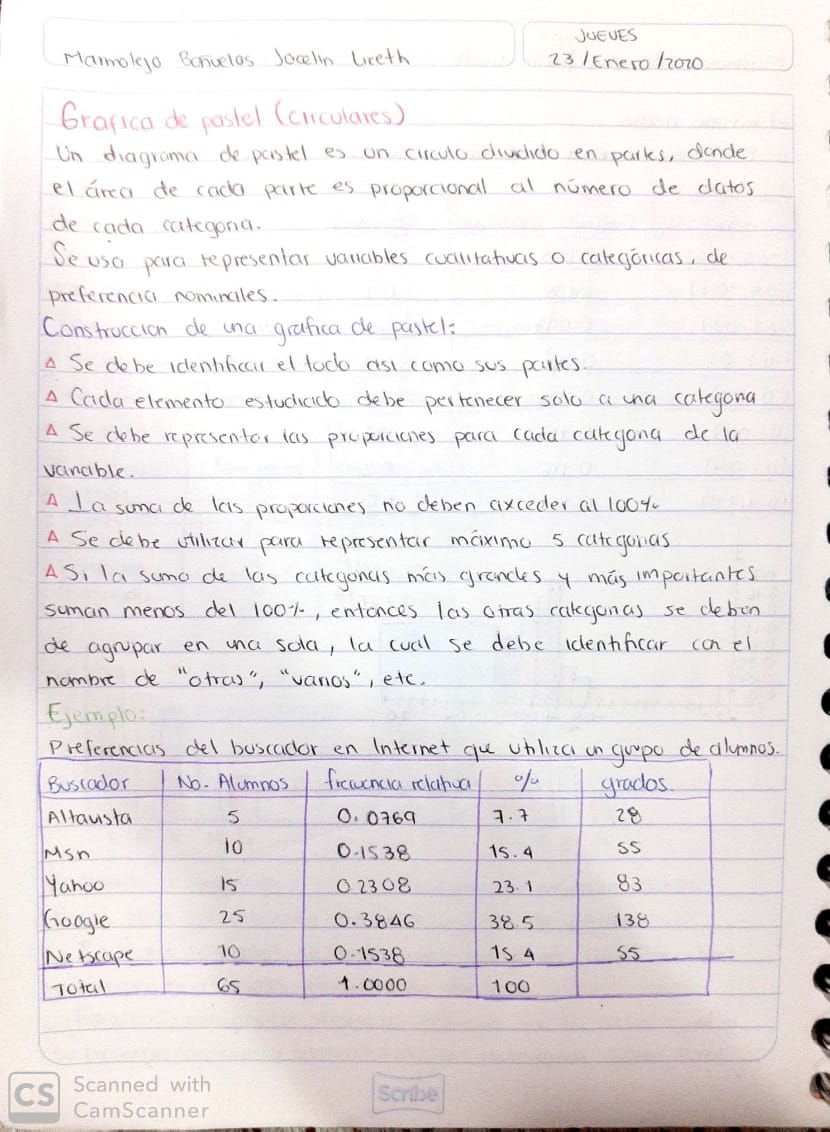 JUEVES
Marmolejo Bañuelos Jocelin Lireth 23/Enero/2020
Grafica de pastel (circulares)
Un diagrama de pastel es un circulo dividido en partes, donde
el área de cada parte es proporcional al número de datos
de cada categoria.
Se usa para representar variables cualitativas o categóricas, de
preferencia nominales.
Construccion de una grafica de pastel:
Δ Se debe identificar el todo asi como sus partes.
Δ Cada elemento estudiado debe pertenecer solo a una categoria
Δ Se debe representar las proporciones para cada categoria de la
variable.
Δ La suma de las proporciones no deben axceder al 100%
Δ Se debe utilizar para representar máximo 5 categorias
Δ Si la suma de las categorias más grandes y más importantes
suman menos del 100%, entonces las otras categorias se deben
de agrupar en una sola, la cual se debe identificar con el
nombre de "otras", "varios", etc.
Ejemplo:
Preferencias del buscador en Internet que utiliza un grupo de alumnos.
Buscador No. Alumnos frecuencia relativa % grados.
Altavista 5 0.0769 7.7 28
Msn 10 0.1538 15.4 55
Yahoo 15 0.2308 23.1 83
Google 25 0.3846 38.5 138
Netscape 10 0.1538 15.4 55
Total 65 1.0000 100
CS Scanned with
CamScanner
Scribe